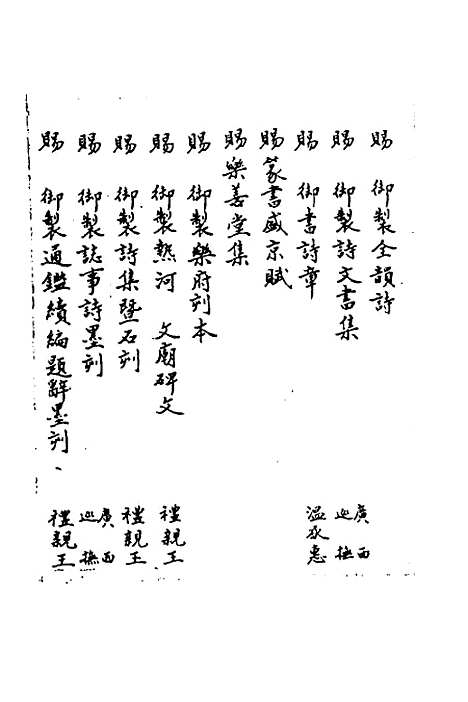 賜 御製全韻詩
賜 御製詩文書集 廣西巡撫
賜 御書詩章 溫承惠
賜 篆書盛京賦
賜 樂善堂集
賜 御製樂府刻本
賜 御製熱河 文廟碑文 禮親王
賜 御製詩集暨石刻 禮親王
賜 御製誌事詩墨刻 廣西巡撫
賜 御製通鑑續編題辭墨刻、 禮親王